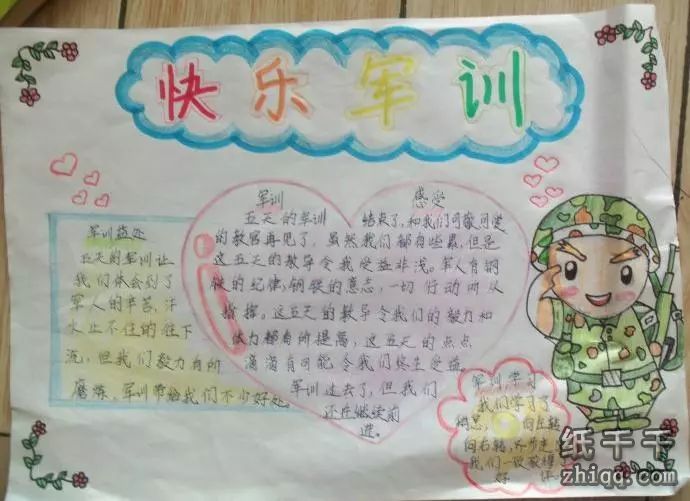 快乐军训
军训益处
五天的军训让
我们体会到了
军人的辛苦，汗
水止不住的往下
流，但我们毅力有所
磨炼，军训带给我们不少好处
军训 感受
五天的军训 结束了，和我们可敬可爱
的教官再见了，虽然我们都有些累，但是
这五天的教导令我受益非浅。军人有钢
铁的纪律，钢铁的意志，一切行动听从
指挥。这五天的教导令我们的毅力和
体力都有所提高，这五天的点点
滴滴有可能令我们终生受益。
军训过去了，但我们
还在继续前
进。
军训学习
我们学习了
稍息， 向左转
向右转，齐步走
我们一致取得了
好
纸千千
zhiqq.com